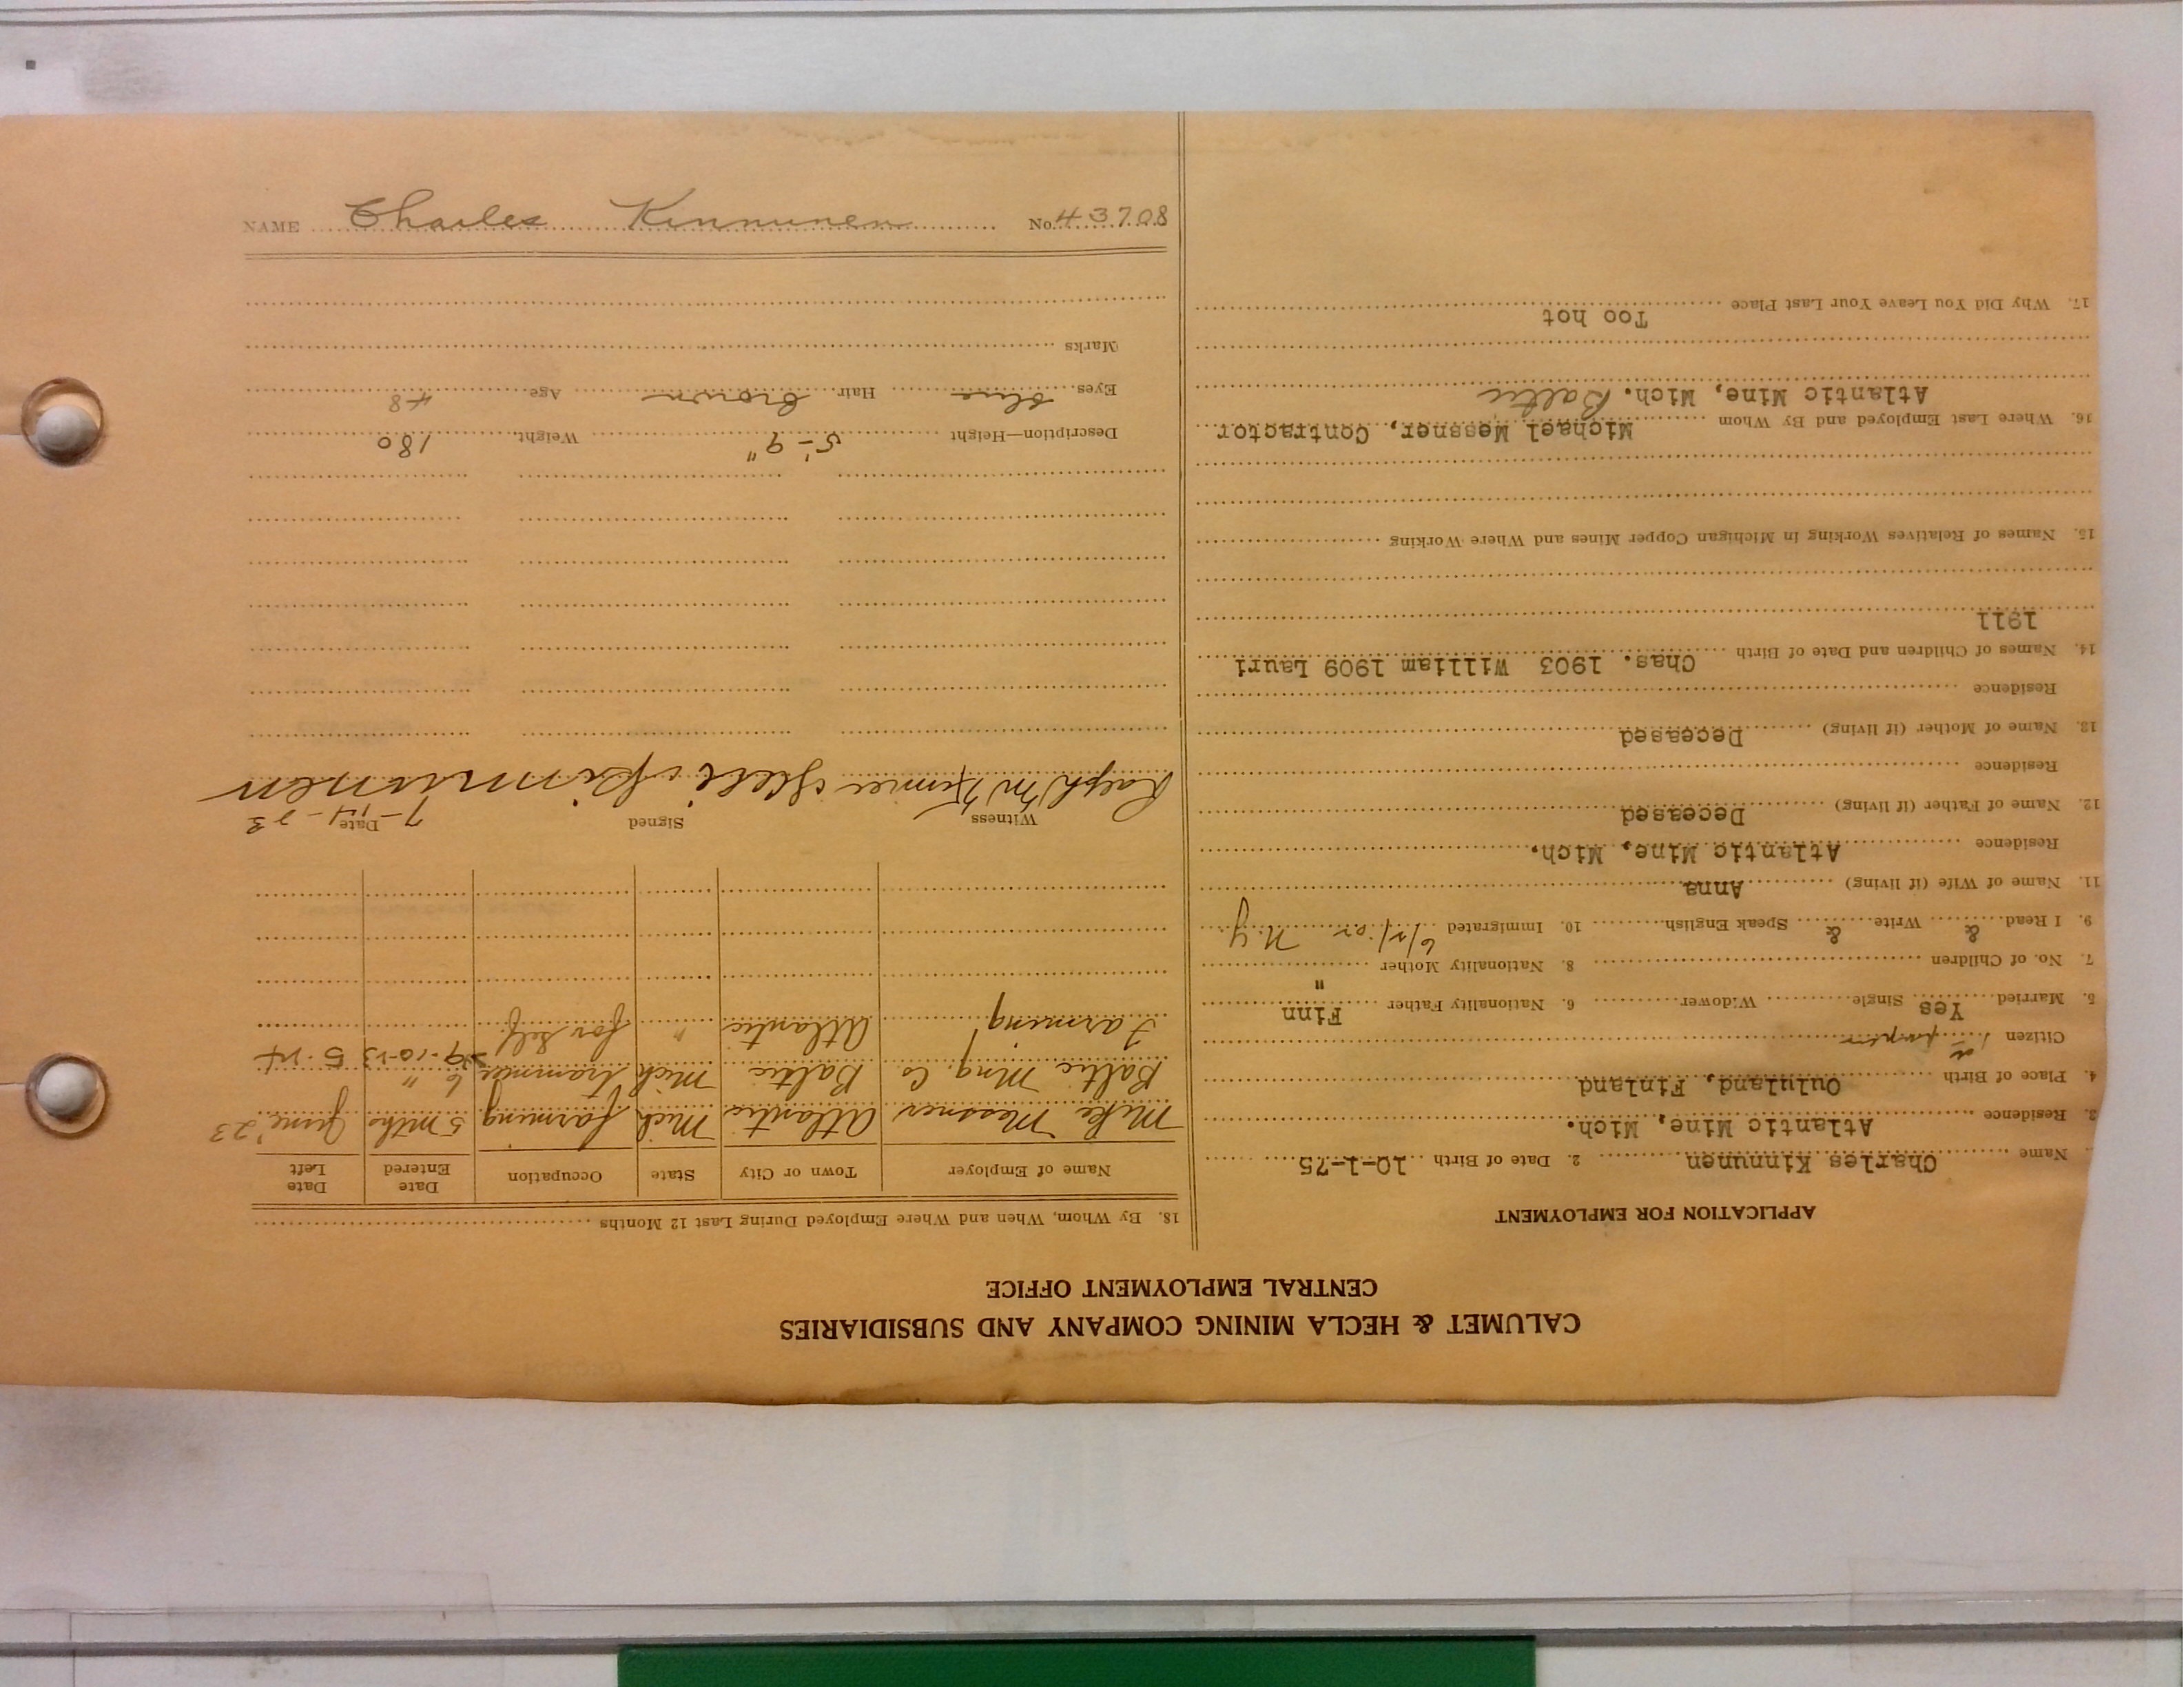 CALUMET & HECLA MINING COMPANY AND SUBSIDIARIES
CENTRAL EMPLOYMENT OFFICE
APPLICATION FOR EMPLOYMENT
Name Charles Kinnunen 2. Date of Birth 10-1-75
3. Residence Atlantic Mine, Mich.
4. Place of Birth Oululand, Finland
Citizen
5. Married Yes Single Widower 6. Nationality Father Finn
7. No. of Children 8. Nationality Mother "
9. I Read & Write & Speak English 10. Immigrated N.Y
11. Name of Wife (if living) Anna
Residence Atlantic Mine, Mich.
12. Name of Father (if living) Deceased
Residence
13. Name of Mother (if living) Deceased
Residence
14. Names of Children and Date of Birth Chas. 1903 William 1909 Lauri
1911
15. Names of Relatives Working in Michigan Copper Mines and Where Working
16. Where Last Employed and By Whom Michael Messner, Contractor
Atlantic Mine, Mich. Baltic
17. Why Did You Leave Your Last Place
Too hot
18. By Whom, When and Where Employed During Last 12 Months
Name of Employer Town or City State Occupation Date Entered Date Left
Mike Messner Atlantic Mich farming 5 mths June '23
Baltic Mng. Co Baltic Mich trammer 6 " 9-10-13 5-14
Farming Atlantic " for self
Witness Signed Date 7-14-23
Ralph Kinnunen
Description—Height 5'-9" Weight 180
Eyes blue Hair brown Age 48
Marks
NAME Charles Kinnunen No. 43708